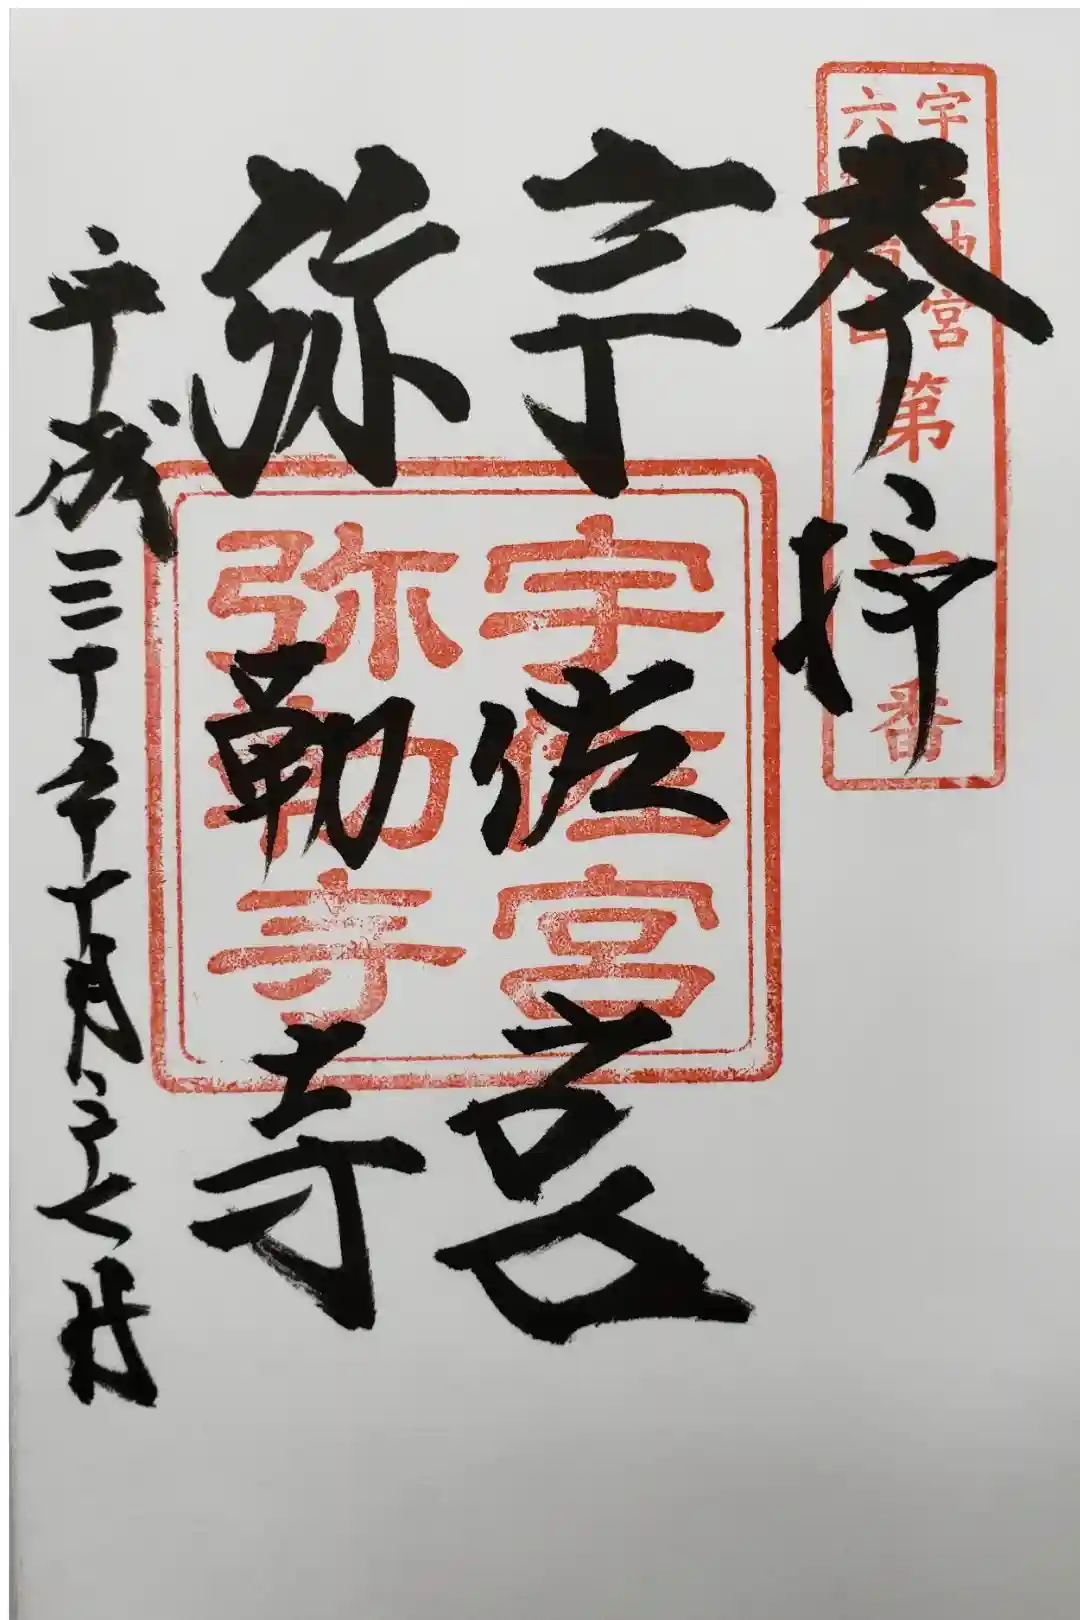 奉拝
宇佐神宮
六郷満山
第一番
宇佐宮
弥勒寺
宇佐宮
弥勒寺
平成三十年十月二十七日